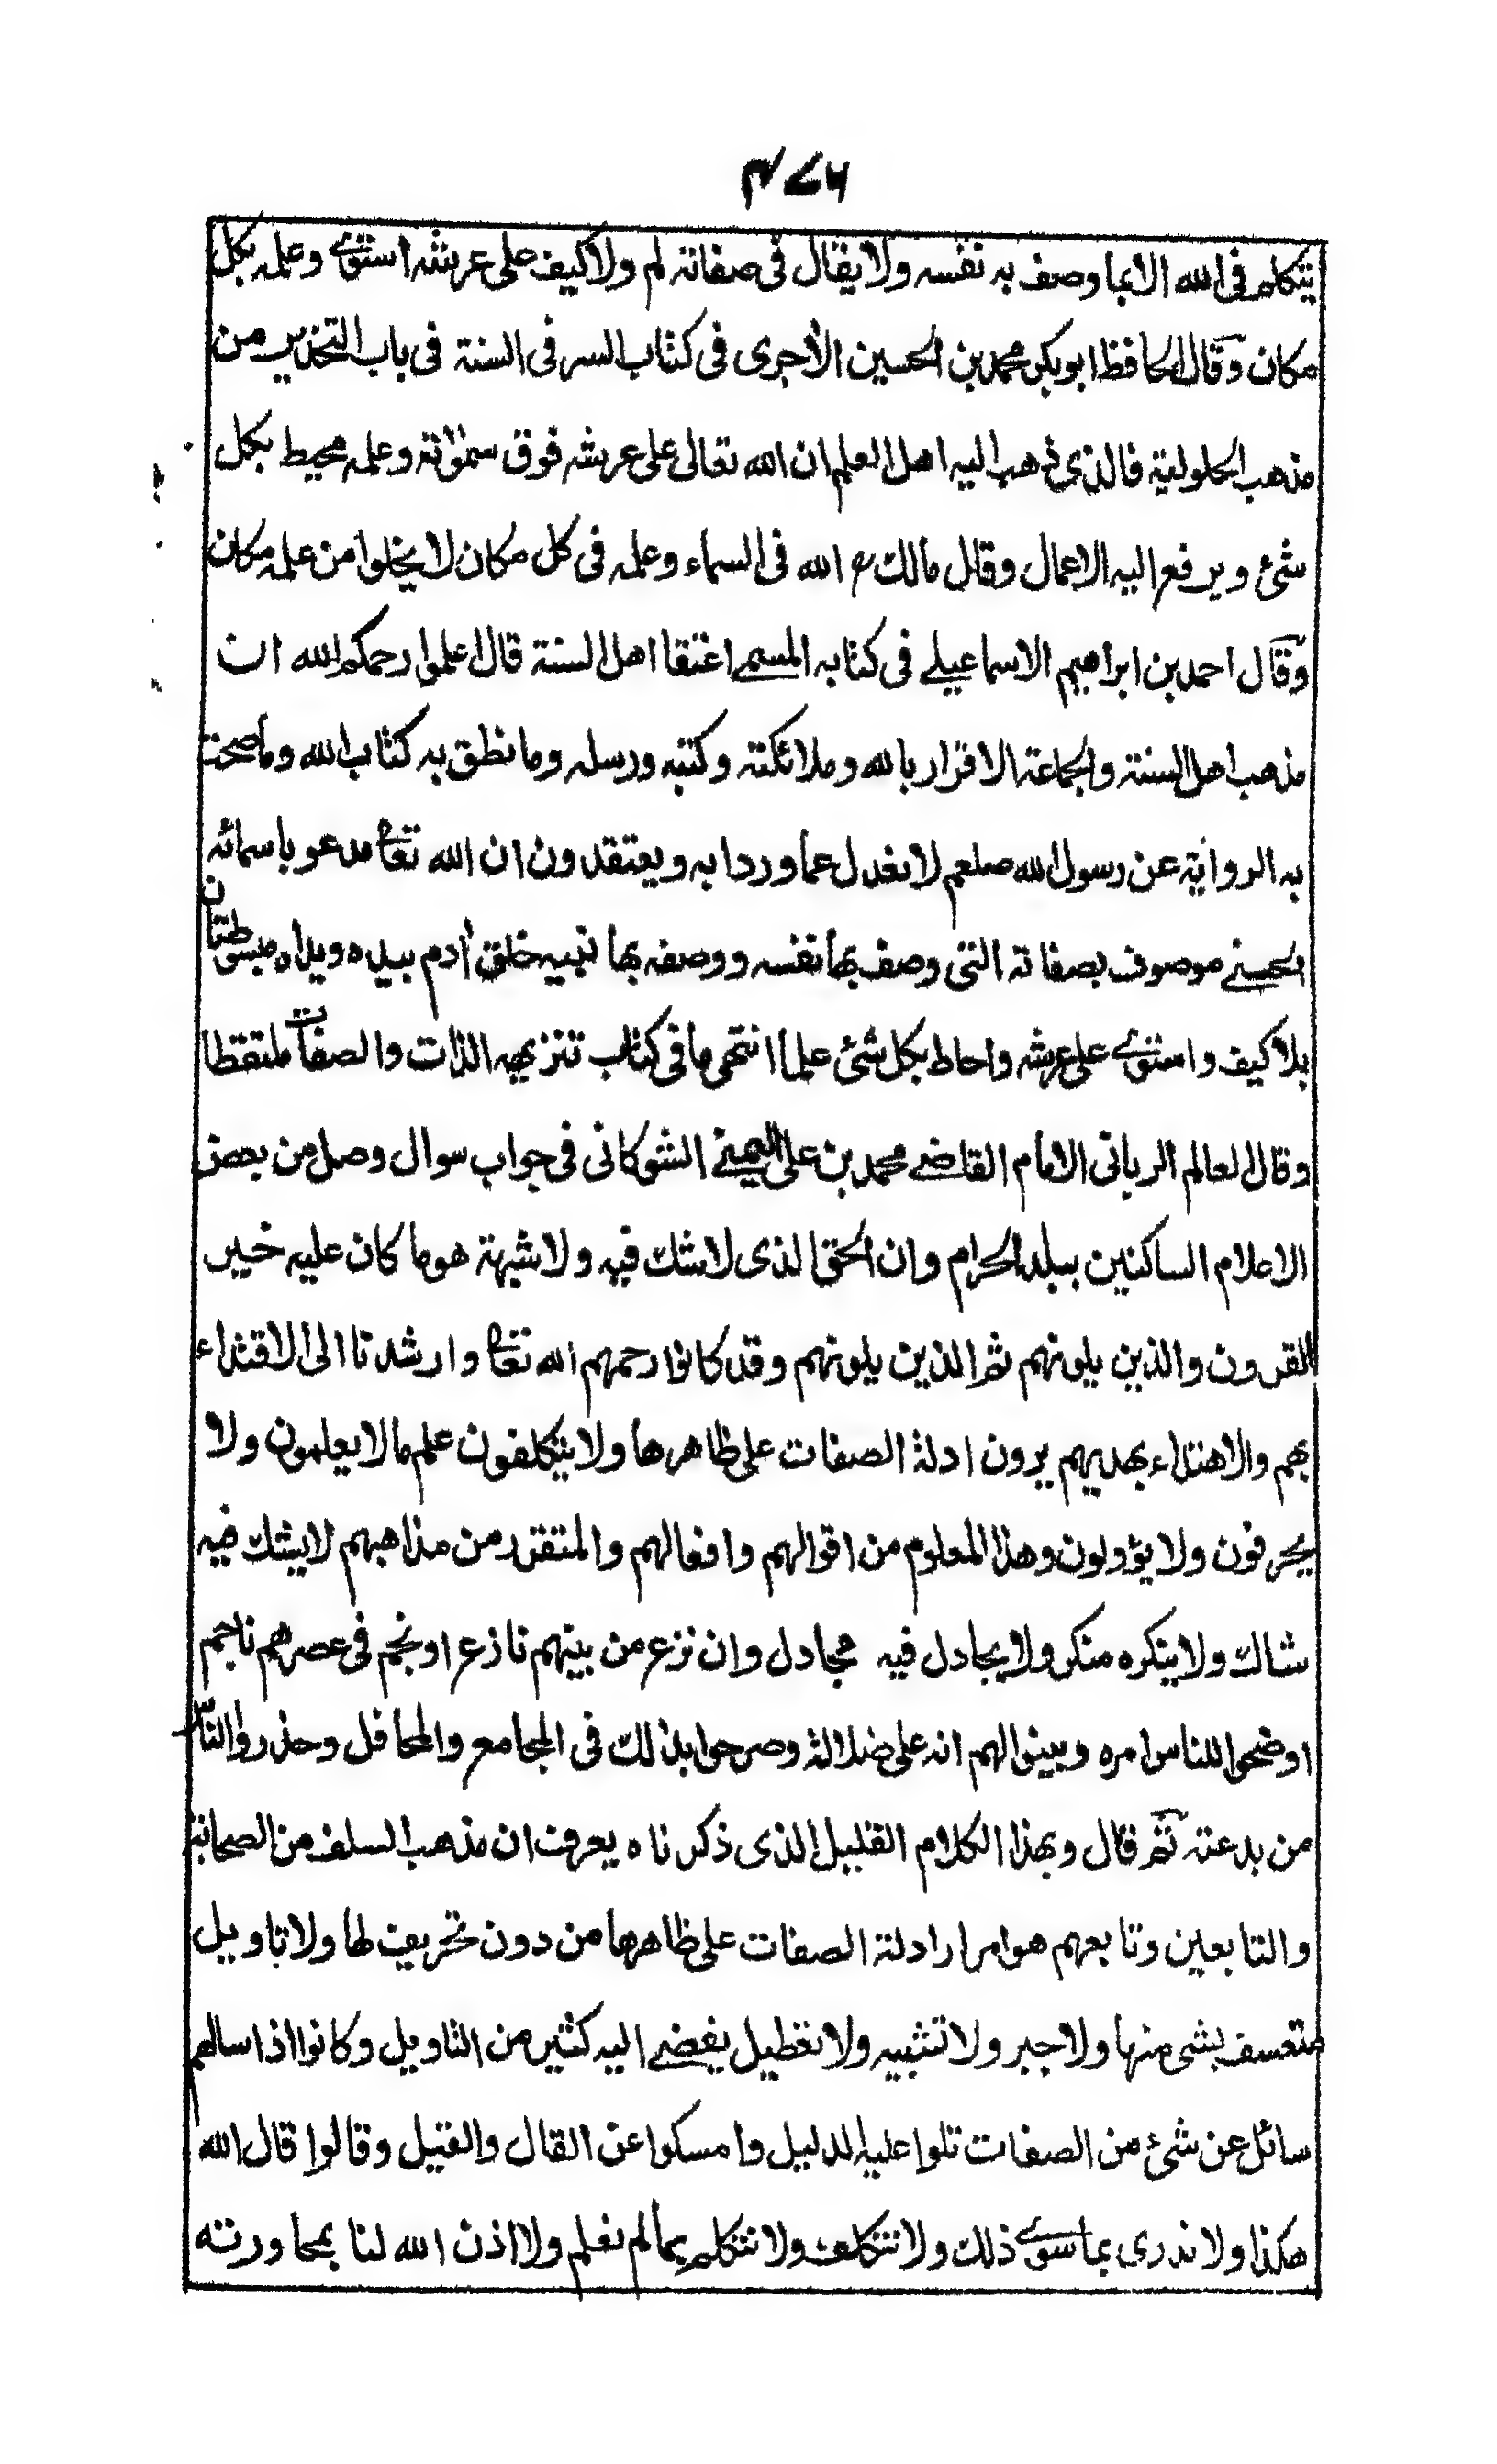 ۴۷۶
يتكلم فى الله الا بما وصف به نفسه ولا يقال فى صفاته لم ولا كيف على عرشه استوى وعلمه بكل
مكان وقال الحافظ ابو بكر محمد بن الحسين الأجرى فى كتاب السر فى السنة فى باب التحذير من
مذهب الحلولية فالذى ذهب اليه اهل العلم ان الله تعالى على عرشه فوق سموٰته وعلمه محيط بكل
شئ ويرفع اليه الاعمال وقال مالك رح الله فى السماء وعلمه فى كل مكان لا يخلوا من علمه مكان
وقال احمد بن ابراهيم الاسماعيلے فى كتابه المسمے اعتقا اهل السنة قال اعلموا رحمكم الله ان
مذهب اهل السنة والجماعة الاقرار بالله وملائكته وكتبه ورسله وما نطق به كتاب الله وما صحت
به الرواية عن رسول الله صلعم لا نعدل عما وردا به ويعتقدون ان الله تعالى مدعو باسمائه
الحسنے موصوف بصفاته التى وصف بها نفسه ووصفه بها نبيه خلق أدم بيده ويداه مبسوطتان
بلا كيف واستوے على عرشه واحاط بكل شئ علما انتهى ما فى كتاب تنزيه الذات والصفات ملتقطا
وقال العالم الربانى الامام القاضے محمد بن على اليمنے الشوكانى فى جواب سوال وصل من بعض
الاعلام الساكنين ببلد الحرام وان الحق الذى لا شك فيه ولا شبهة هو ما كان عليه خير
القرون والذين يلونهم ثم الذين يلونهم وقد كانوا رحمهم الله تعالى وارشدنا الى الاقتداء
بهم والاهتداء بهديهم يرون ادلة الصفات على ظاهرها ولا يتكلفون علم ما لا يعلمون ولا
يحرفون ولا يؤولون وهذا المعلوم من اقوالهم وافعالهم والمتقرر من مذاهبهم لا يشك فيه
شاك ولا ينكره منكر ولا يجادل فيه مجادل وان نزع من بينهم نازع او نجم فى عصرهم ناجم
اوضحوا للناس امره وبينوا لهم انه على ضلالة وصرحوا بذلك فى المجامع والمحافل وحذروا الناس
من بدعته ثم قال وبهذا الكلام القليل الذى ذكرناه يعرف ان مذهب السلف من الصحابة
والتابعين وتابعهم هو امرار ادلة الصفات على ظاهرها من دون تحريف لها ولا تاويل
متعسف بشى منها ولا جبر ولا تشبيه ولا تعطيل يفضے اليه كثير من التاويل وكانوا اذا سالهم
سائل عن شئ من الصفات تلوا عليه الدليل وامسكوا عن القال والقيل وقالوا قال الله
هكذا ولا ندرى بما سوے ذلك ولا نتكلف ولا نتكلم بما لم نعلم ولا اذن الله لنا بمجاورته